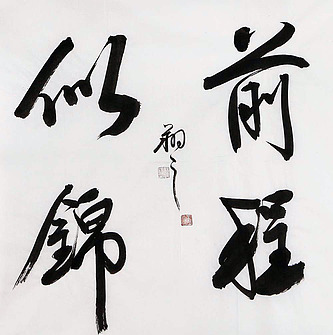 前程
似錦